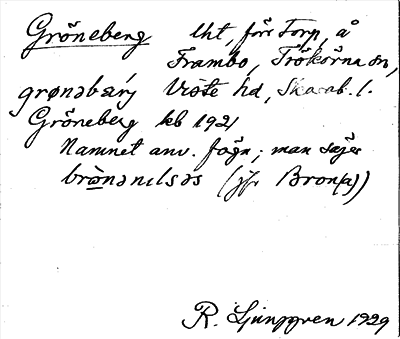 Gröneberg lht, förr Torp, å
Frambo, Trökörna sn,
grønəbærj Viste hd, Skarab. l.
Gröneberg kb 1921
Namnet anv. fögn; man säger
brònənılsəs (jfr Bron(a))
R. Ljunggren 1929